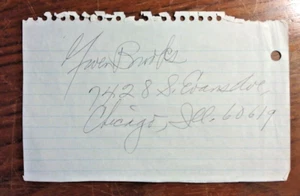 Gwen Brooks
7428 S. Evans Ave,
Chicago, Ill. 60619